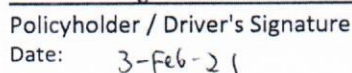 Policyholder / Driver's Signature
Date: 3-Feb-21